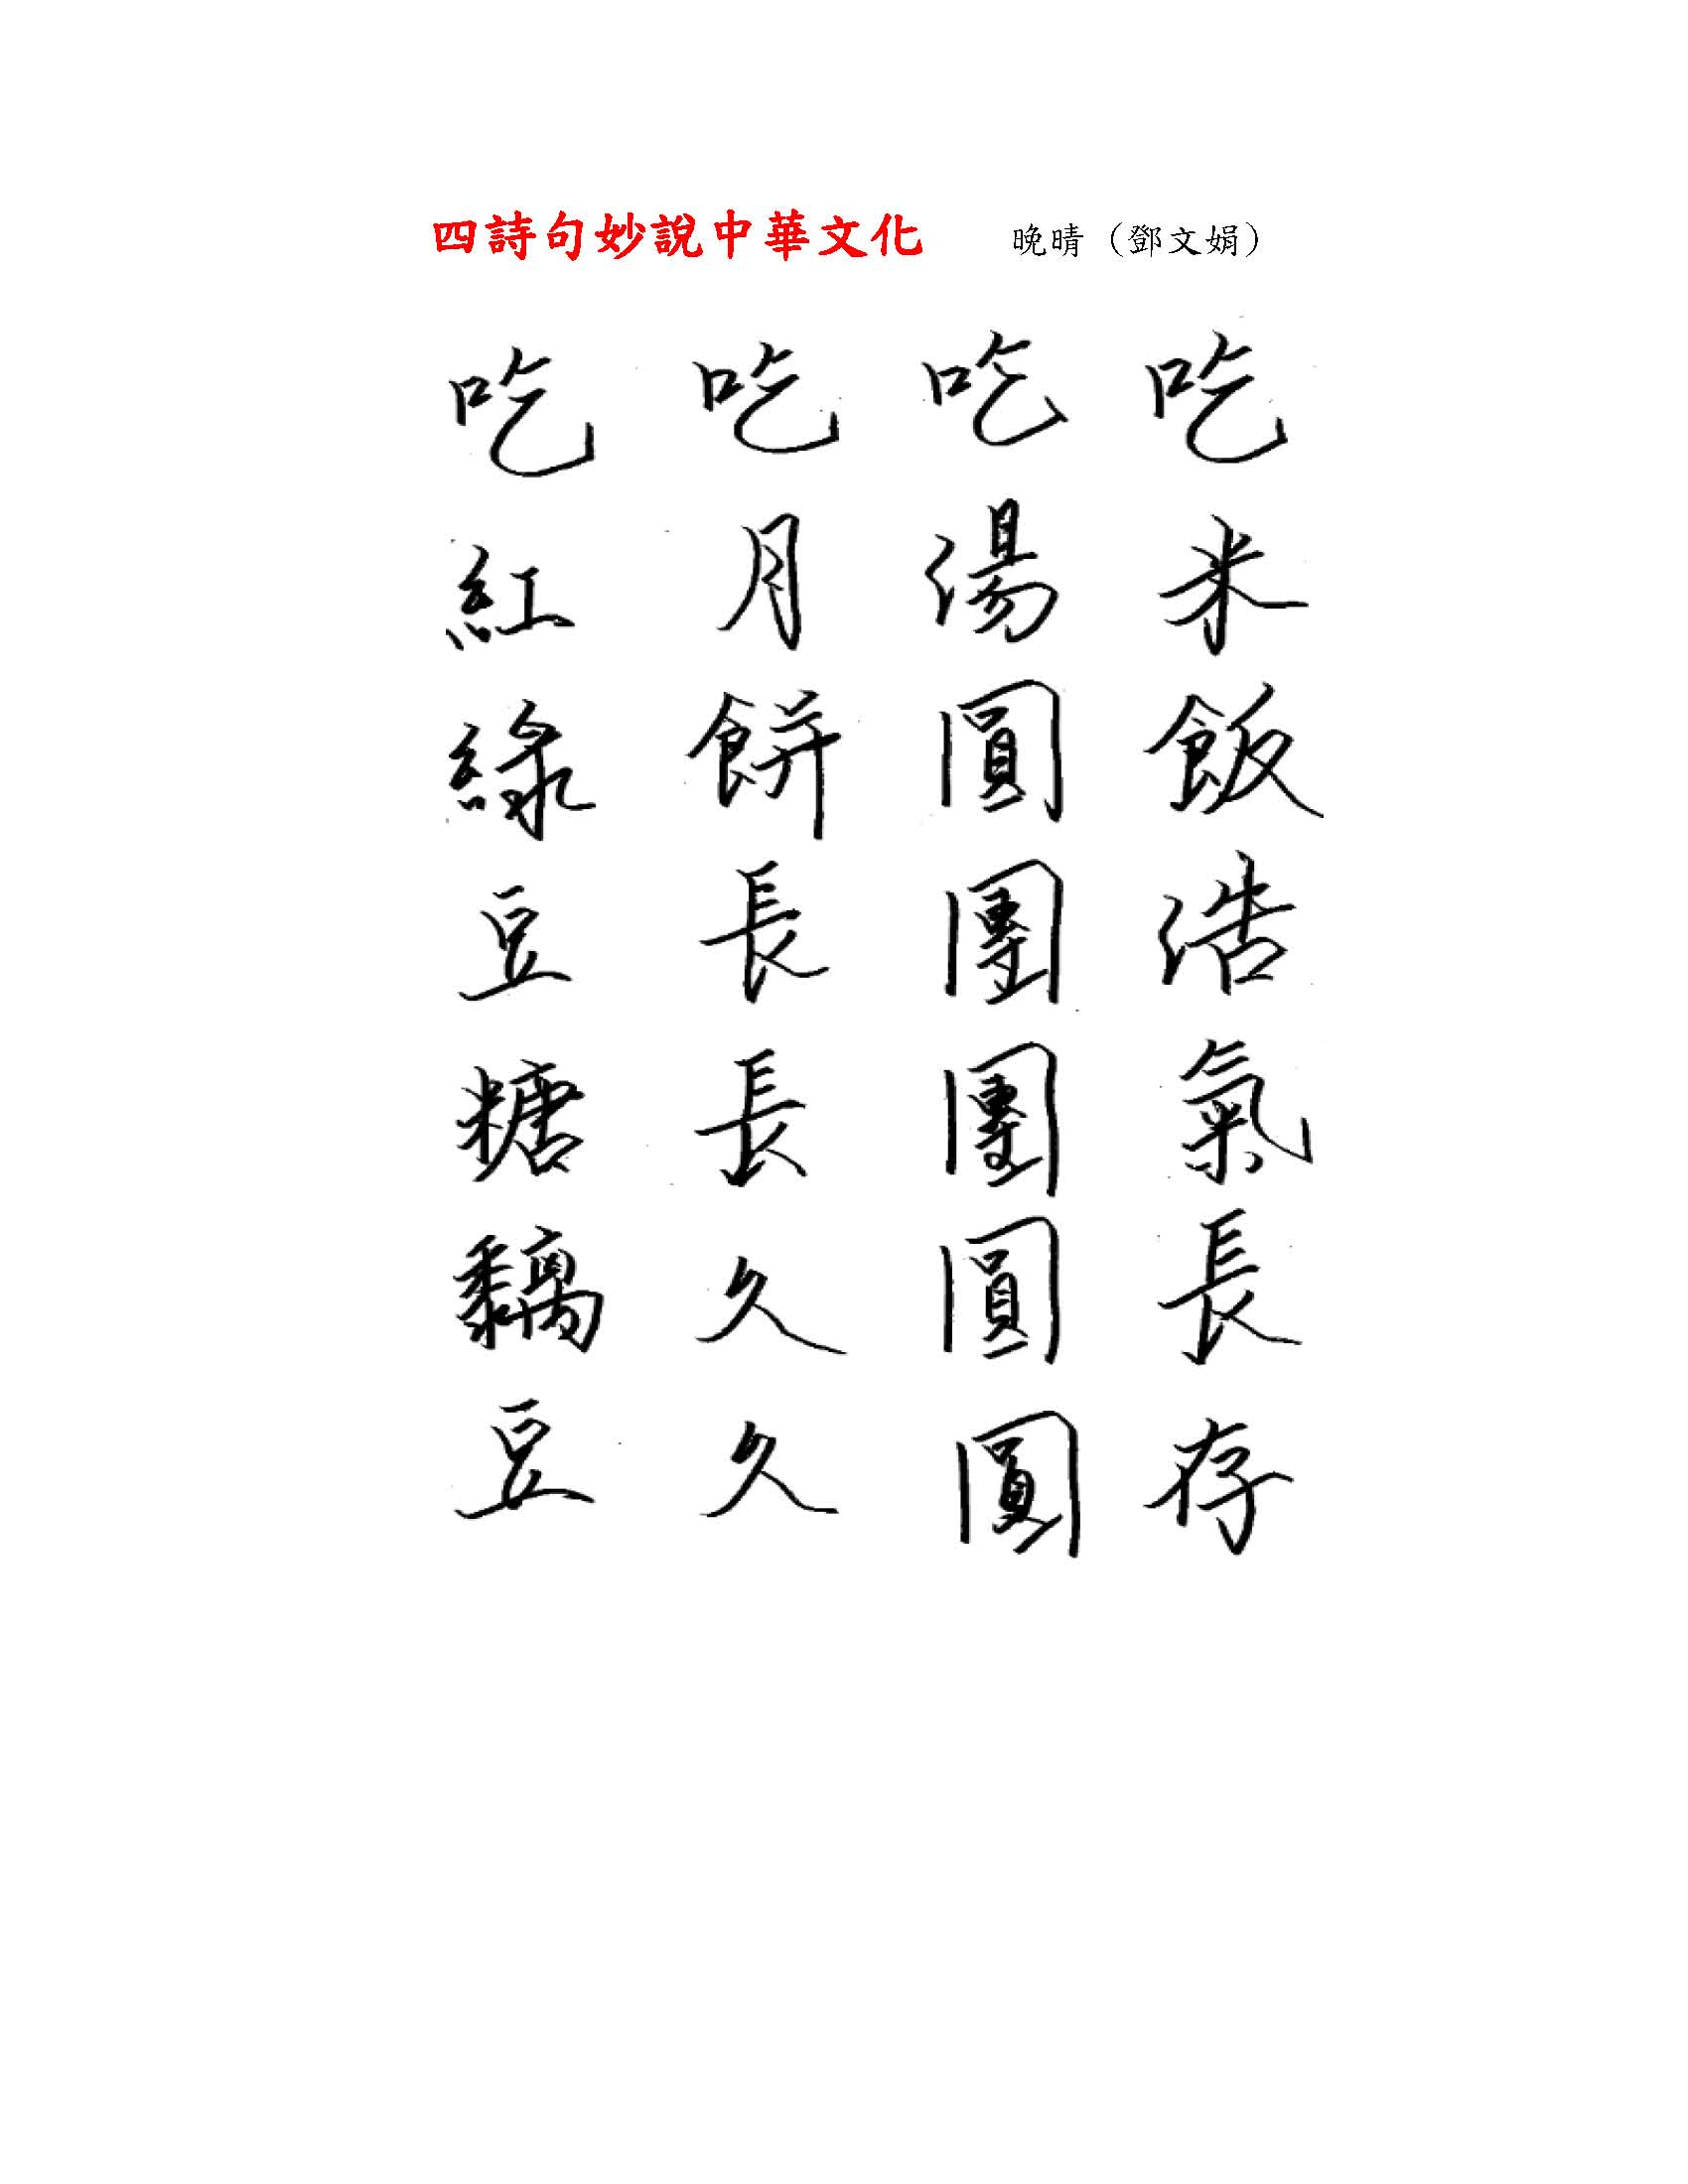 四詩句妙說中華文化 晚晴（鄧文娟）
吃米飯浩氣長存
吃湯圓團團圓圓
吃月餅長長久久
吃紅綠豆糖黐豆